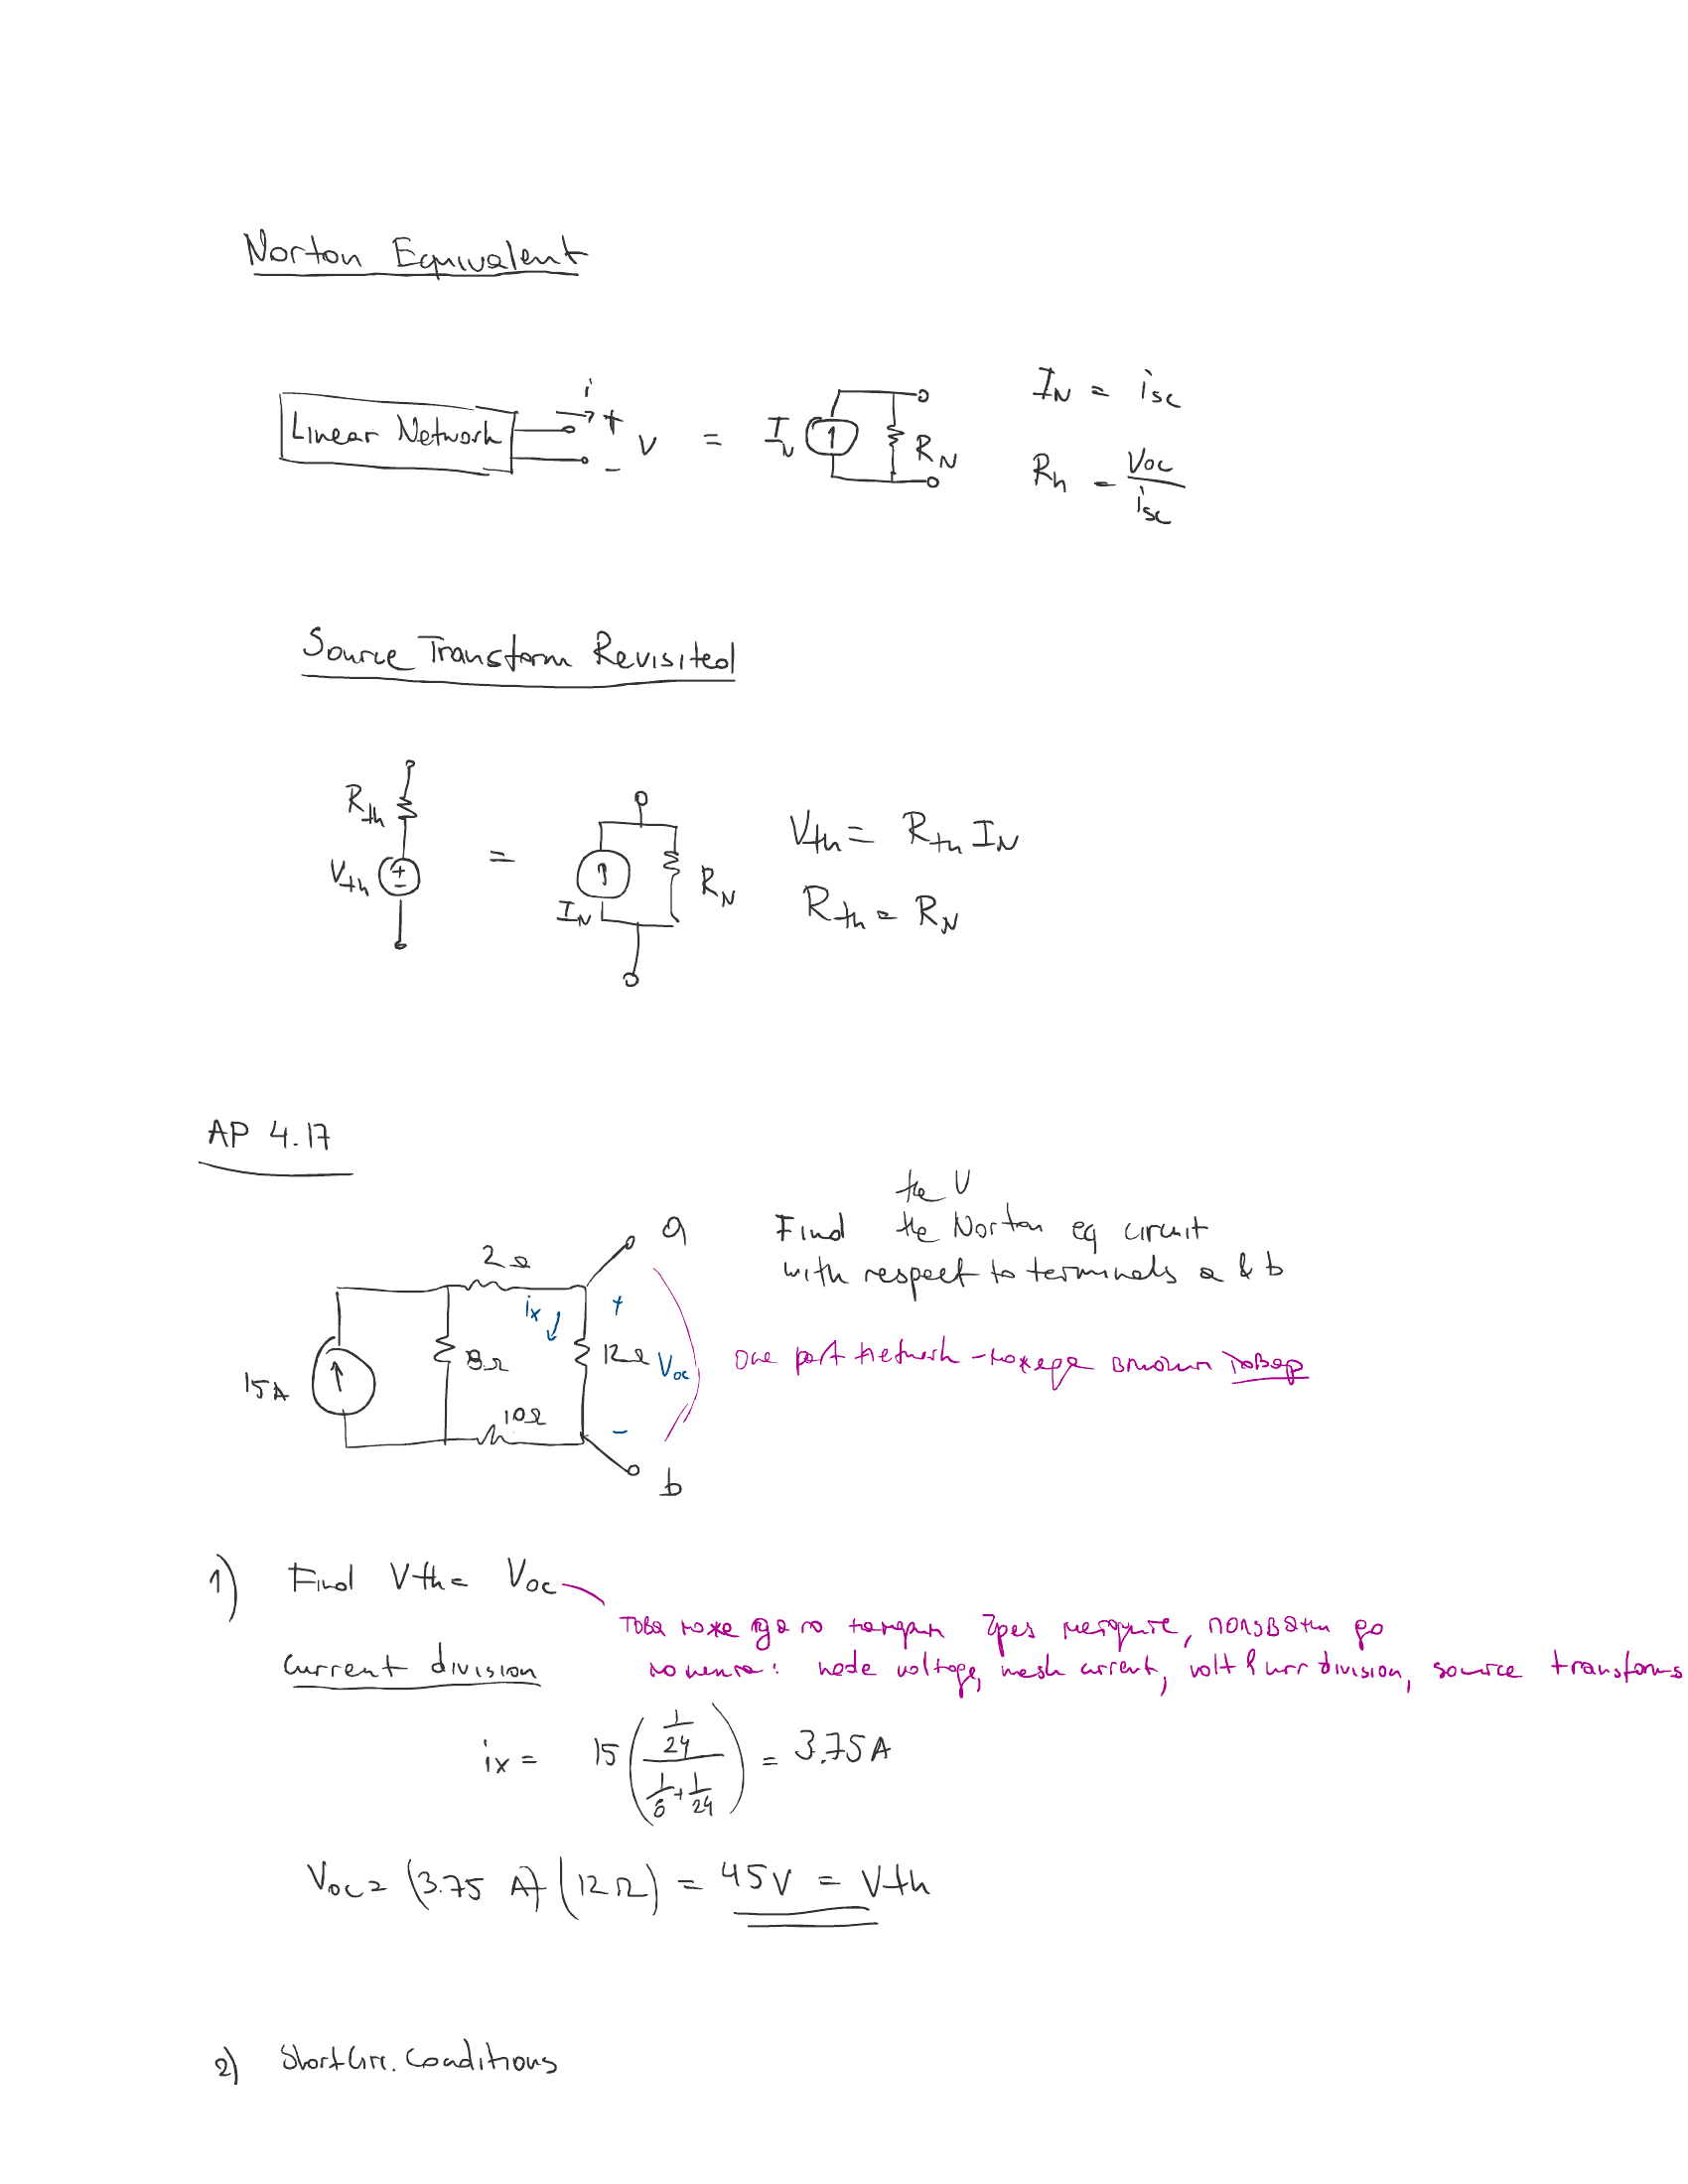 Norton Equivalent
Linear Network
i
+
v
-
=
I_N
R_N
I_N = i_sc
R_h = Voc / i_sc
Source Transform Revisited
R_th
V_th
+
-
=
I_N
R_N
V_th = R_th I_N
R_th = R_N
AP 4.17
the V
Find the Norton eq circuit
with respect to terminals a & b
a
2Ω
i_x
+
15A
8Ω
12Ω
V_oc
10Ω
-
b
One port network - може да включи товар
1) Find Vth = Voc
Това може да го намерим чрез методите, ползвани до
момента: node voltage, mesh current, volt & curr division, source transforms
Current division
i_x = 15 ( (1/24) / (1/8 + 1/24) ) = 3.75 A
Voc = (3.75 A) (12 Ω) = 45V = Vth
2) Short Circ. Conditions